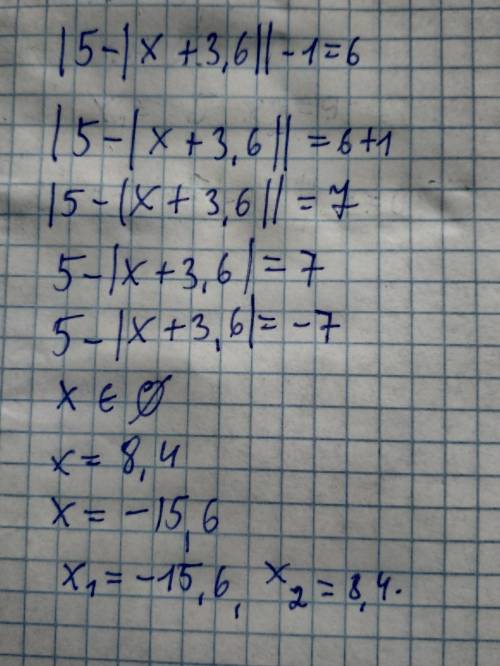 |5-|x+3,6||-1=6
|5-|x+3,6||=6+1
|5-|x+3,6||=7
5-|x+3,6|=7
5-|x+3,6|=-7
x ∈ ∅
x=8,4
x=-15,6
x₁=-15,6, x₂=8,4.